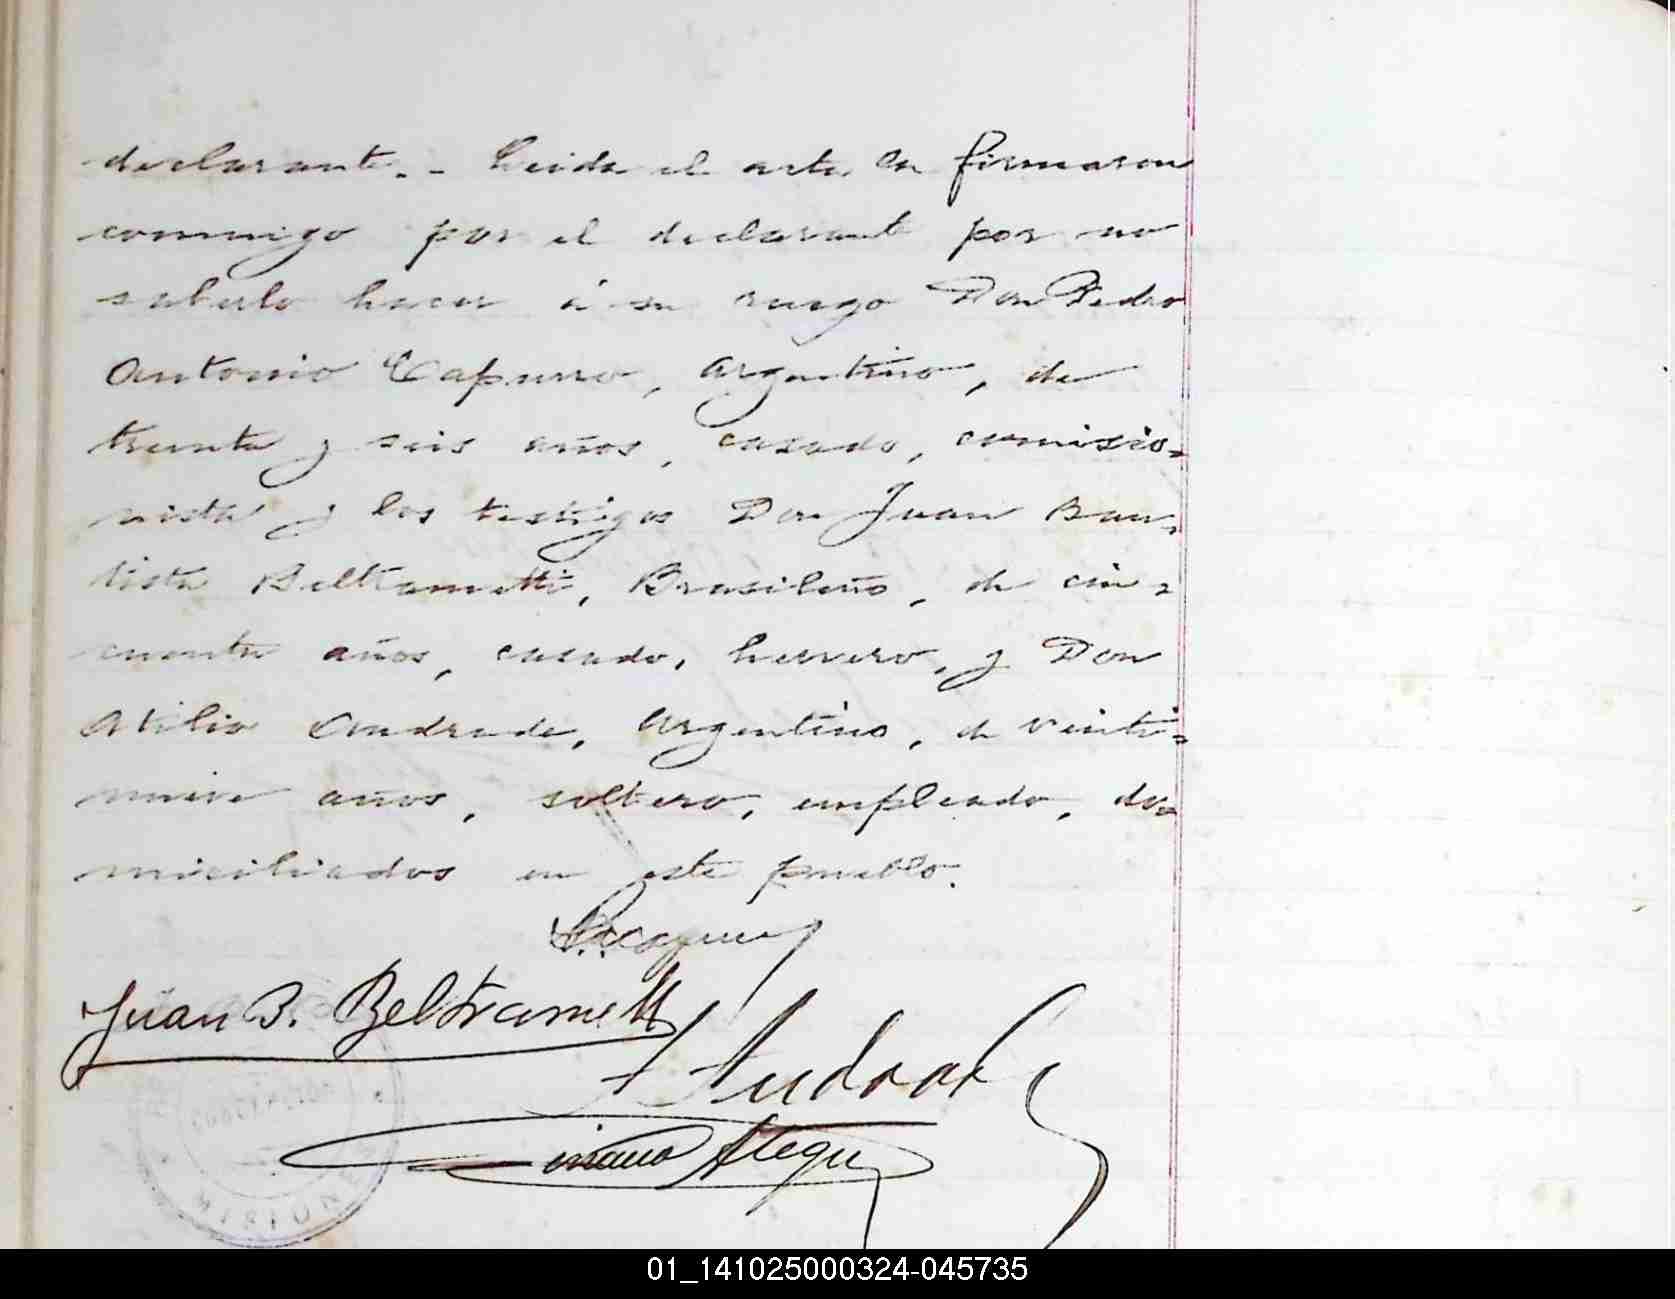 declarante. - Leida el acta la firmaron
conmigo por el declarante por no
saberlo hacer á su ruego Don Pedro
Antonio Capurro, Argentino, de
treinta y seis años, casado, comisio-
nista y los testigos Don Juan Bau-
tista Beltrametti, Brasileño, de cin-
cuenta años, casado, herrero, y Don
Atilio Andrade, Argentino, de veinti-
nueve años, soltero, empleado, do-
miciliados en este pueblo.
Juan B. Beltrametti
Andrade
CONCEPCION
MISIONES
01_141025000324-045735